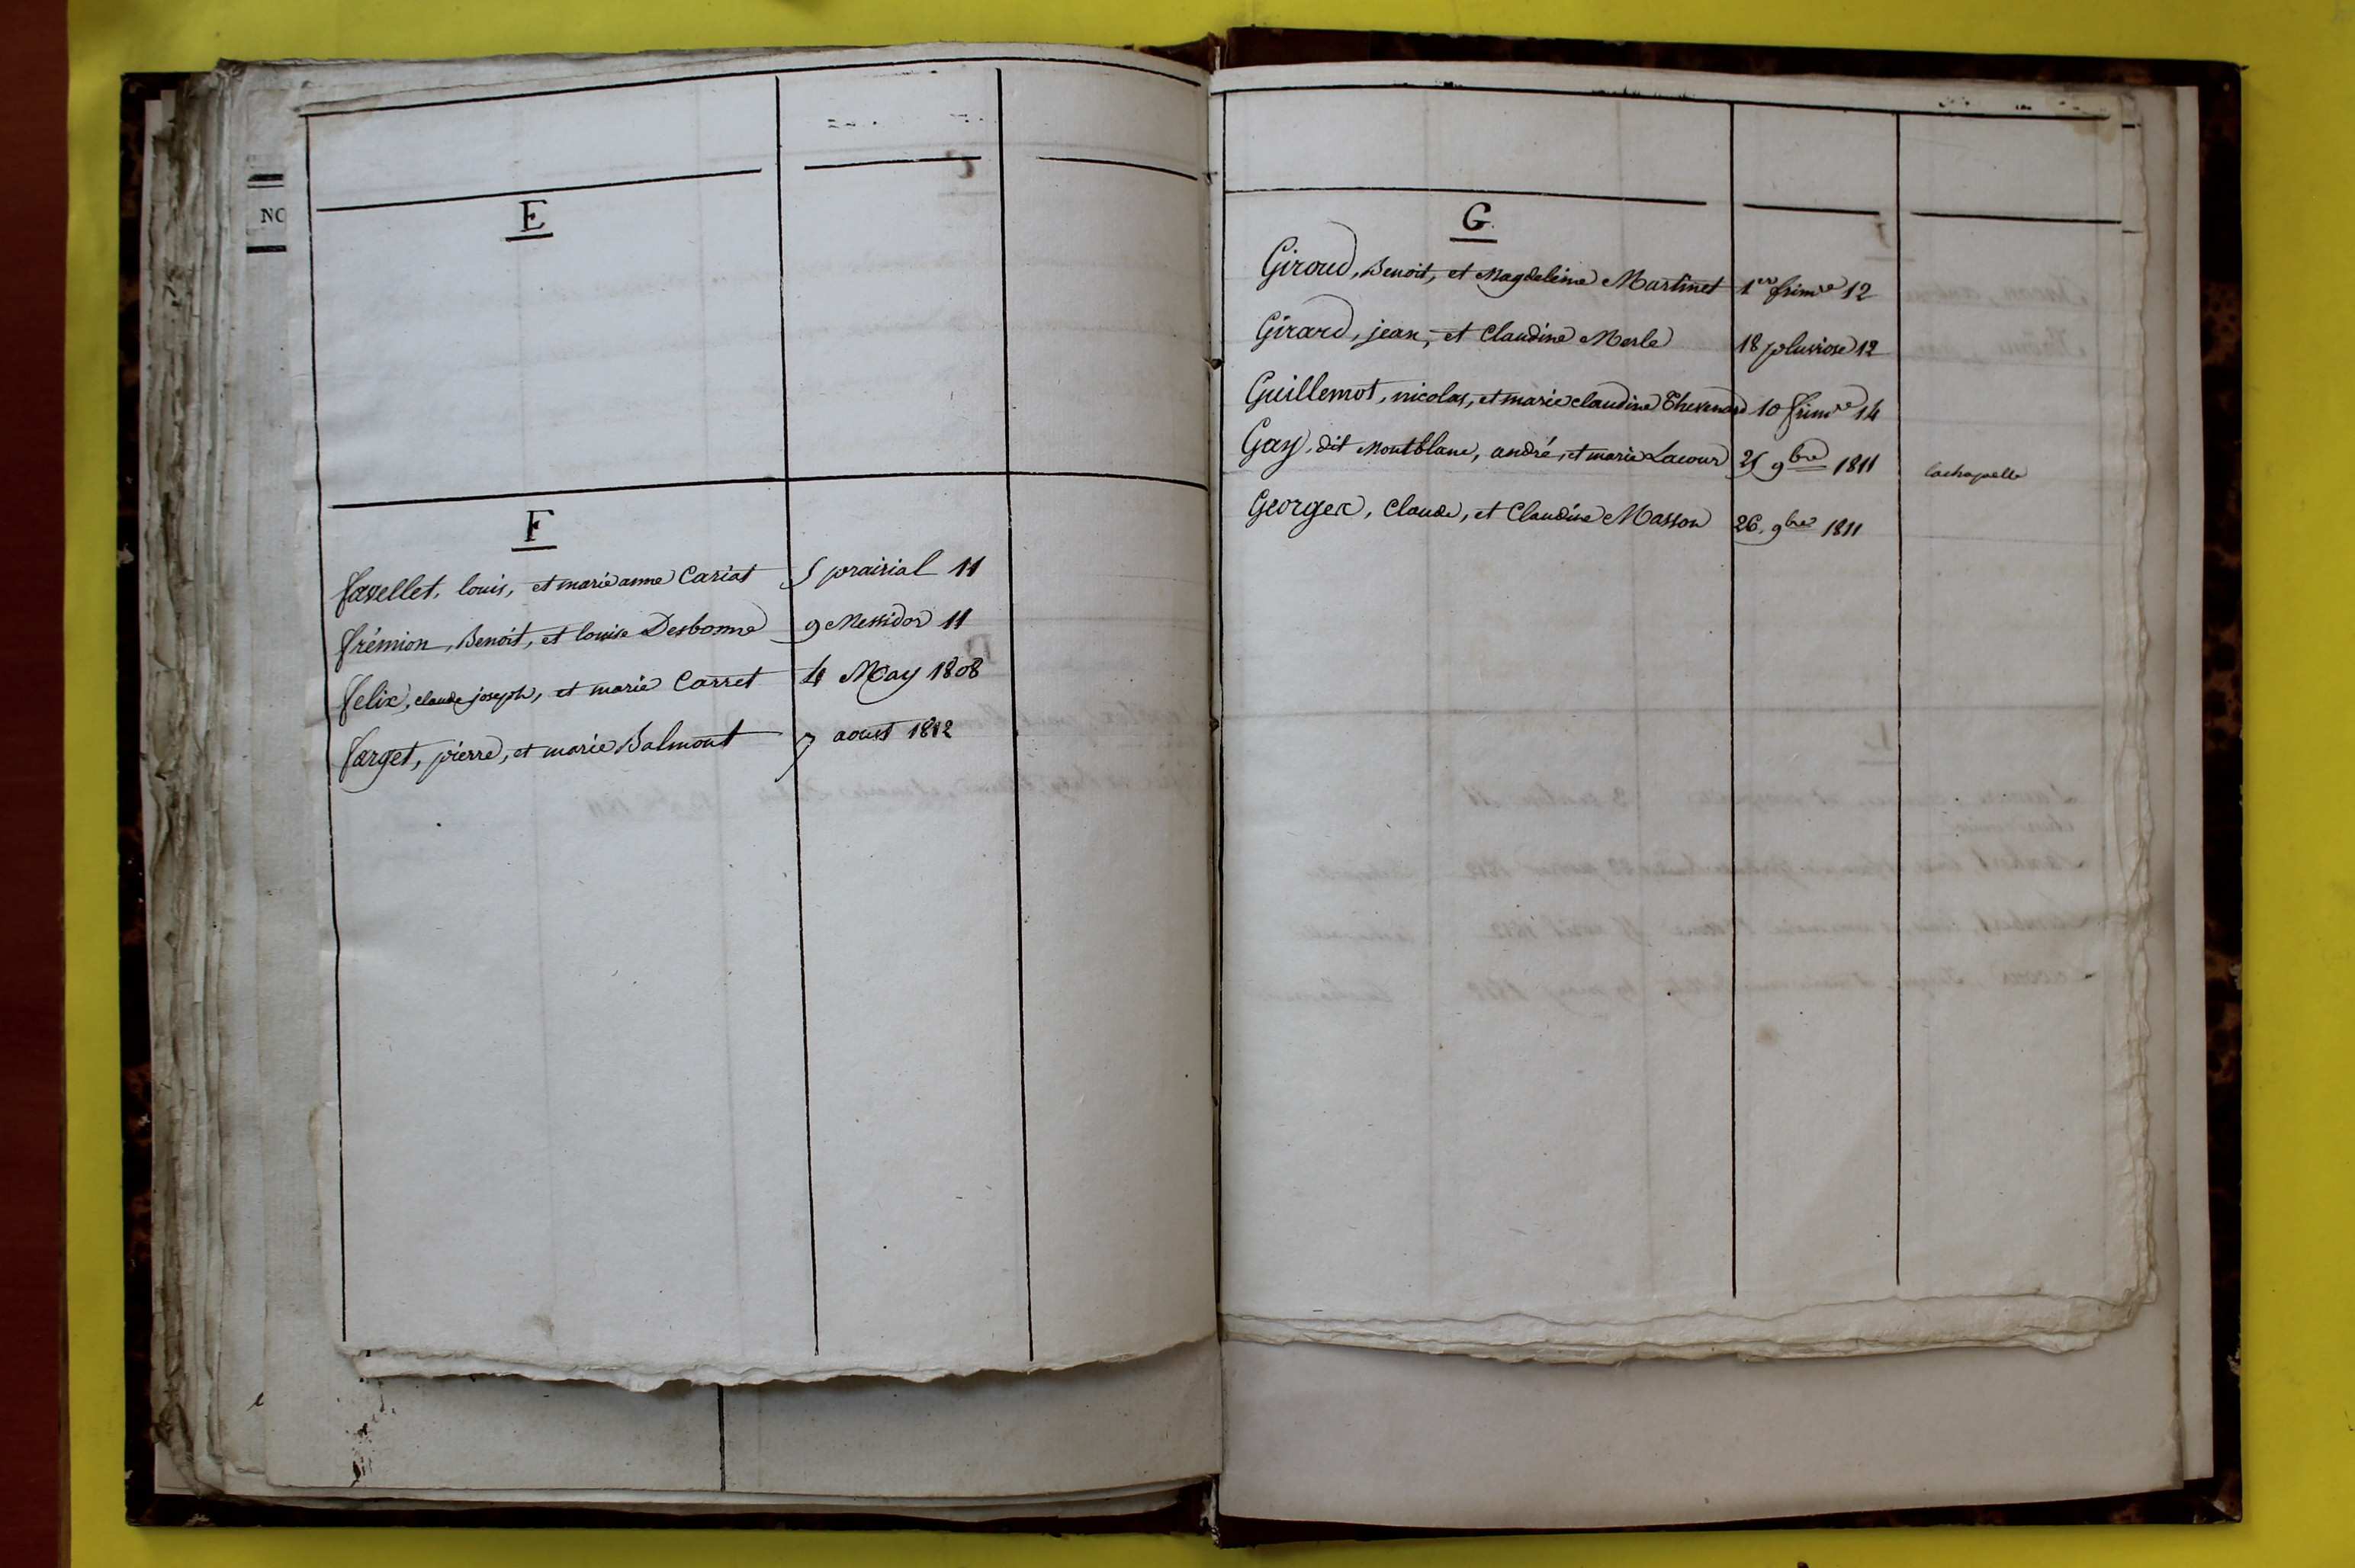 NO
E
F
favellet, louis, et marie anne Cariat 5 prairial 11
frémion, Benoit, et louise Desbonne 9 Messidor 11
felix, claude joseph, et marie Carret 4 May 1808
farget, pierre, et marie Balmont 7 aoust 1812
G
Giroud, Benoit, et Magdeleine Martinet 1er frimre 12
Girard, jean, et Claudine Merle 18 pluviose 12
Guillemot, nicolas, et marie claudine Thevenard 10 frimre 14
Gay, dit Montblanc, andré, et marie Lacour 25 9bre 1811 lachapelle
Georges, Claude, et Claudine Masson 26. 9bre 1811